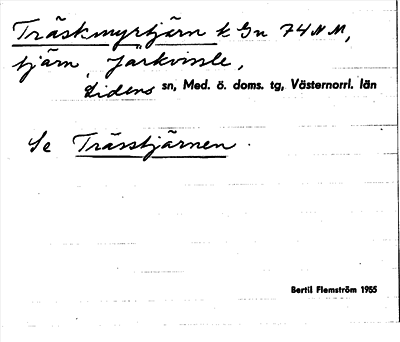 Träskmyrtjärn k Gn 74 N M,
tjärn, Järkvissle,
Lidens sn, Med. ö. doms. tg, Västernorrl. län
Se Trässtjärnen.
Bertil Flemström 1955